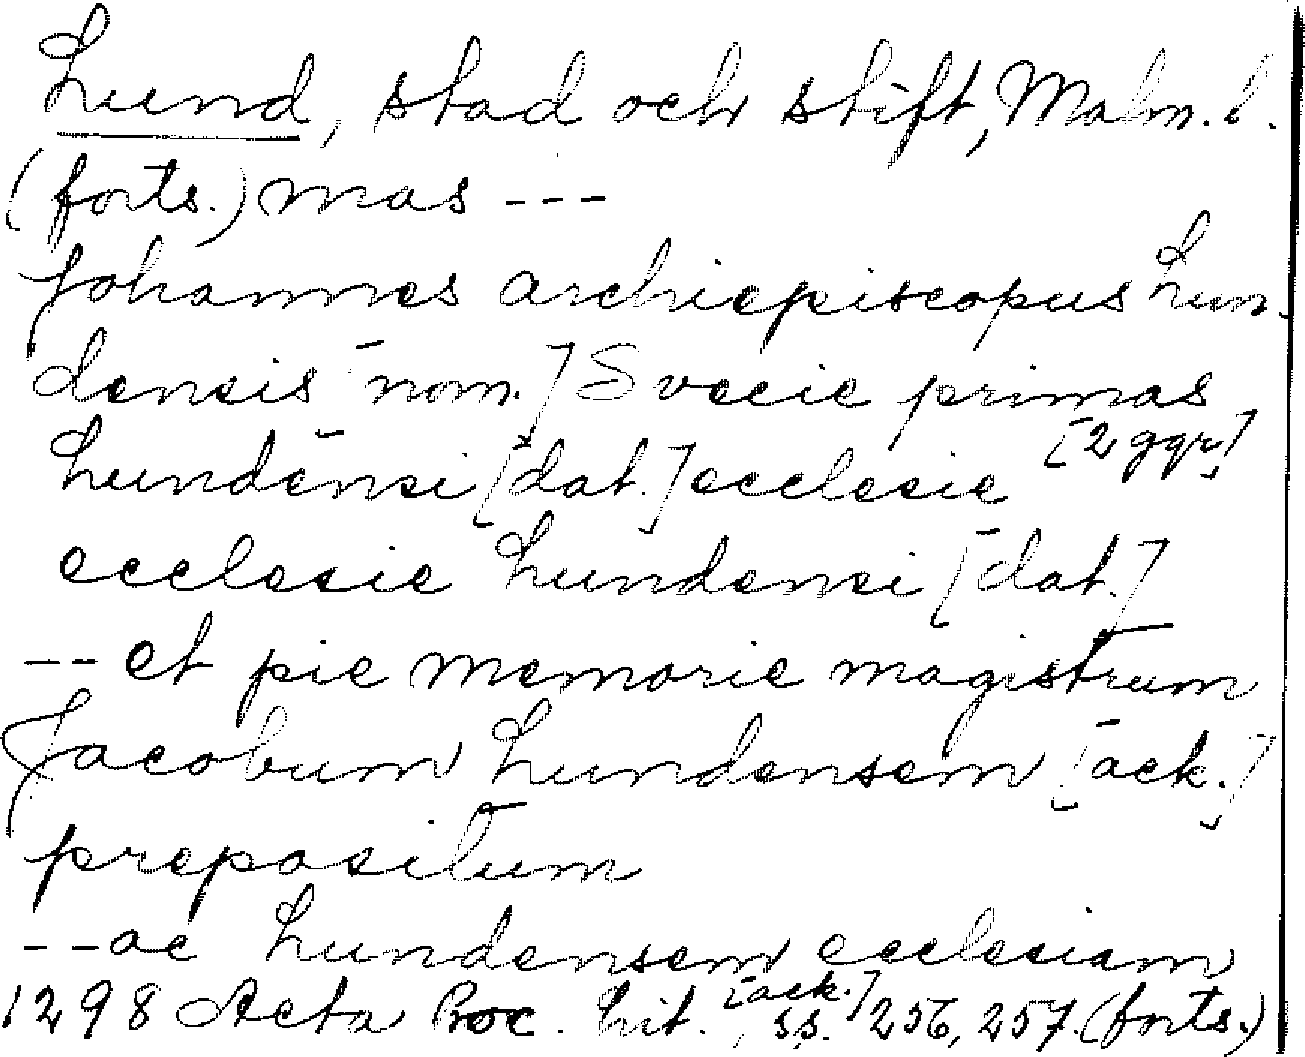 Lund, stad och stift, Malm. l.
(forts.) mas ---
Johannes archiepiscopus Lun-
densis [nom.] Svecie primas
Lundensi [dat.] ecclesie [2 ggr]
ecclesie Lundensi [dat.]
-- et pie memorie magistrum
Jacobum Lundensem [ack.]
prepositum
-- ac Lundensem ecclesiam
1298 Acta Proc. Lit. [ack.], ss. 256, 257. (forts.)